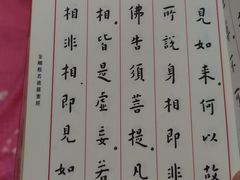 見如來何以故
所說身相即非
佛告須菩提凡
相皆是虛妄若
相非相即見如
金剛般若波羅蜜經